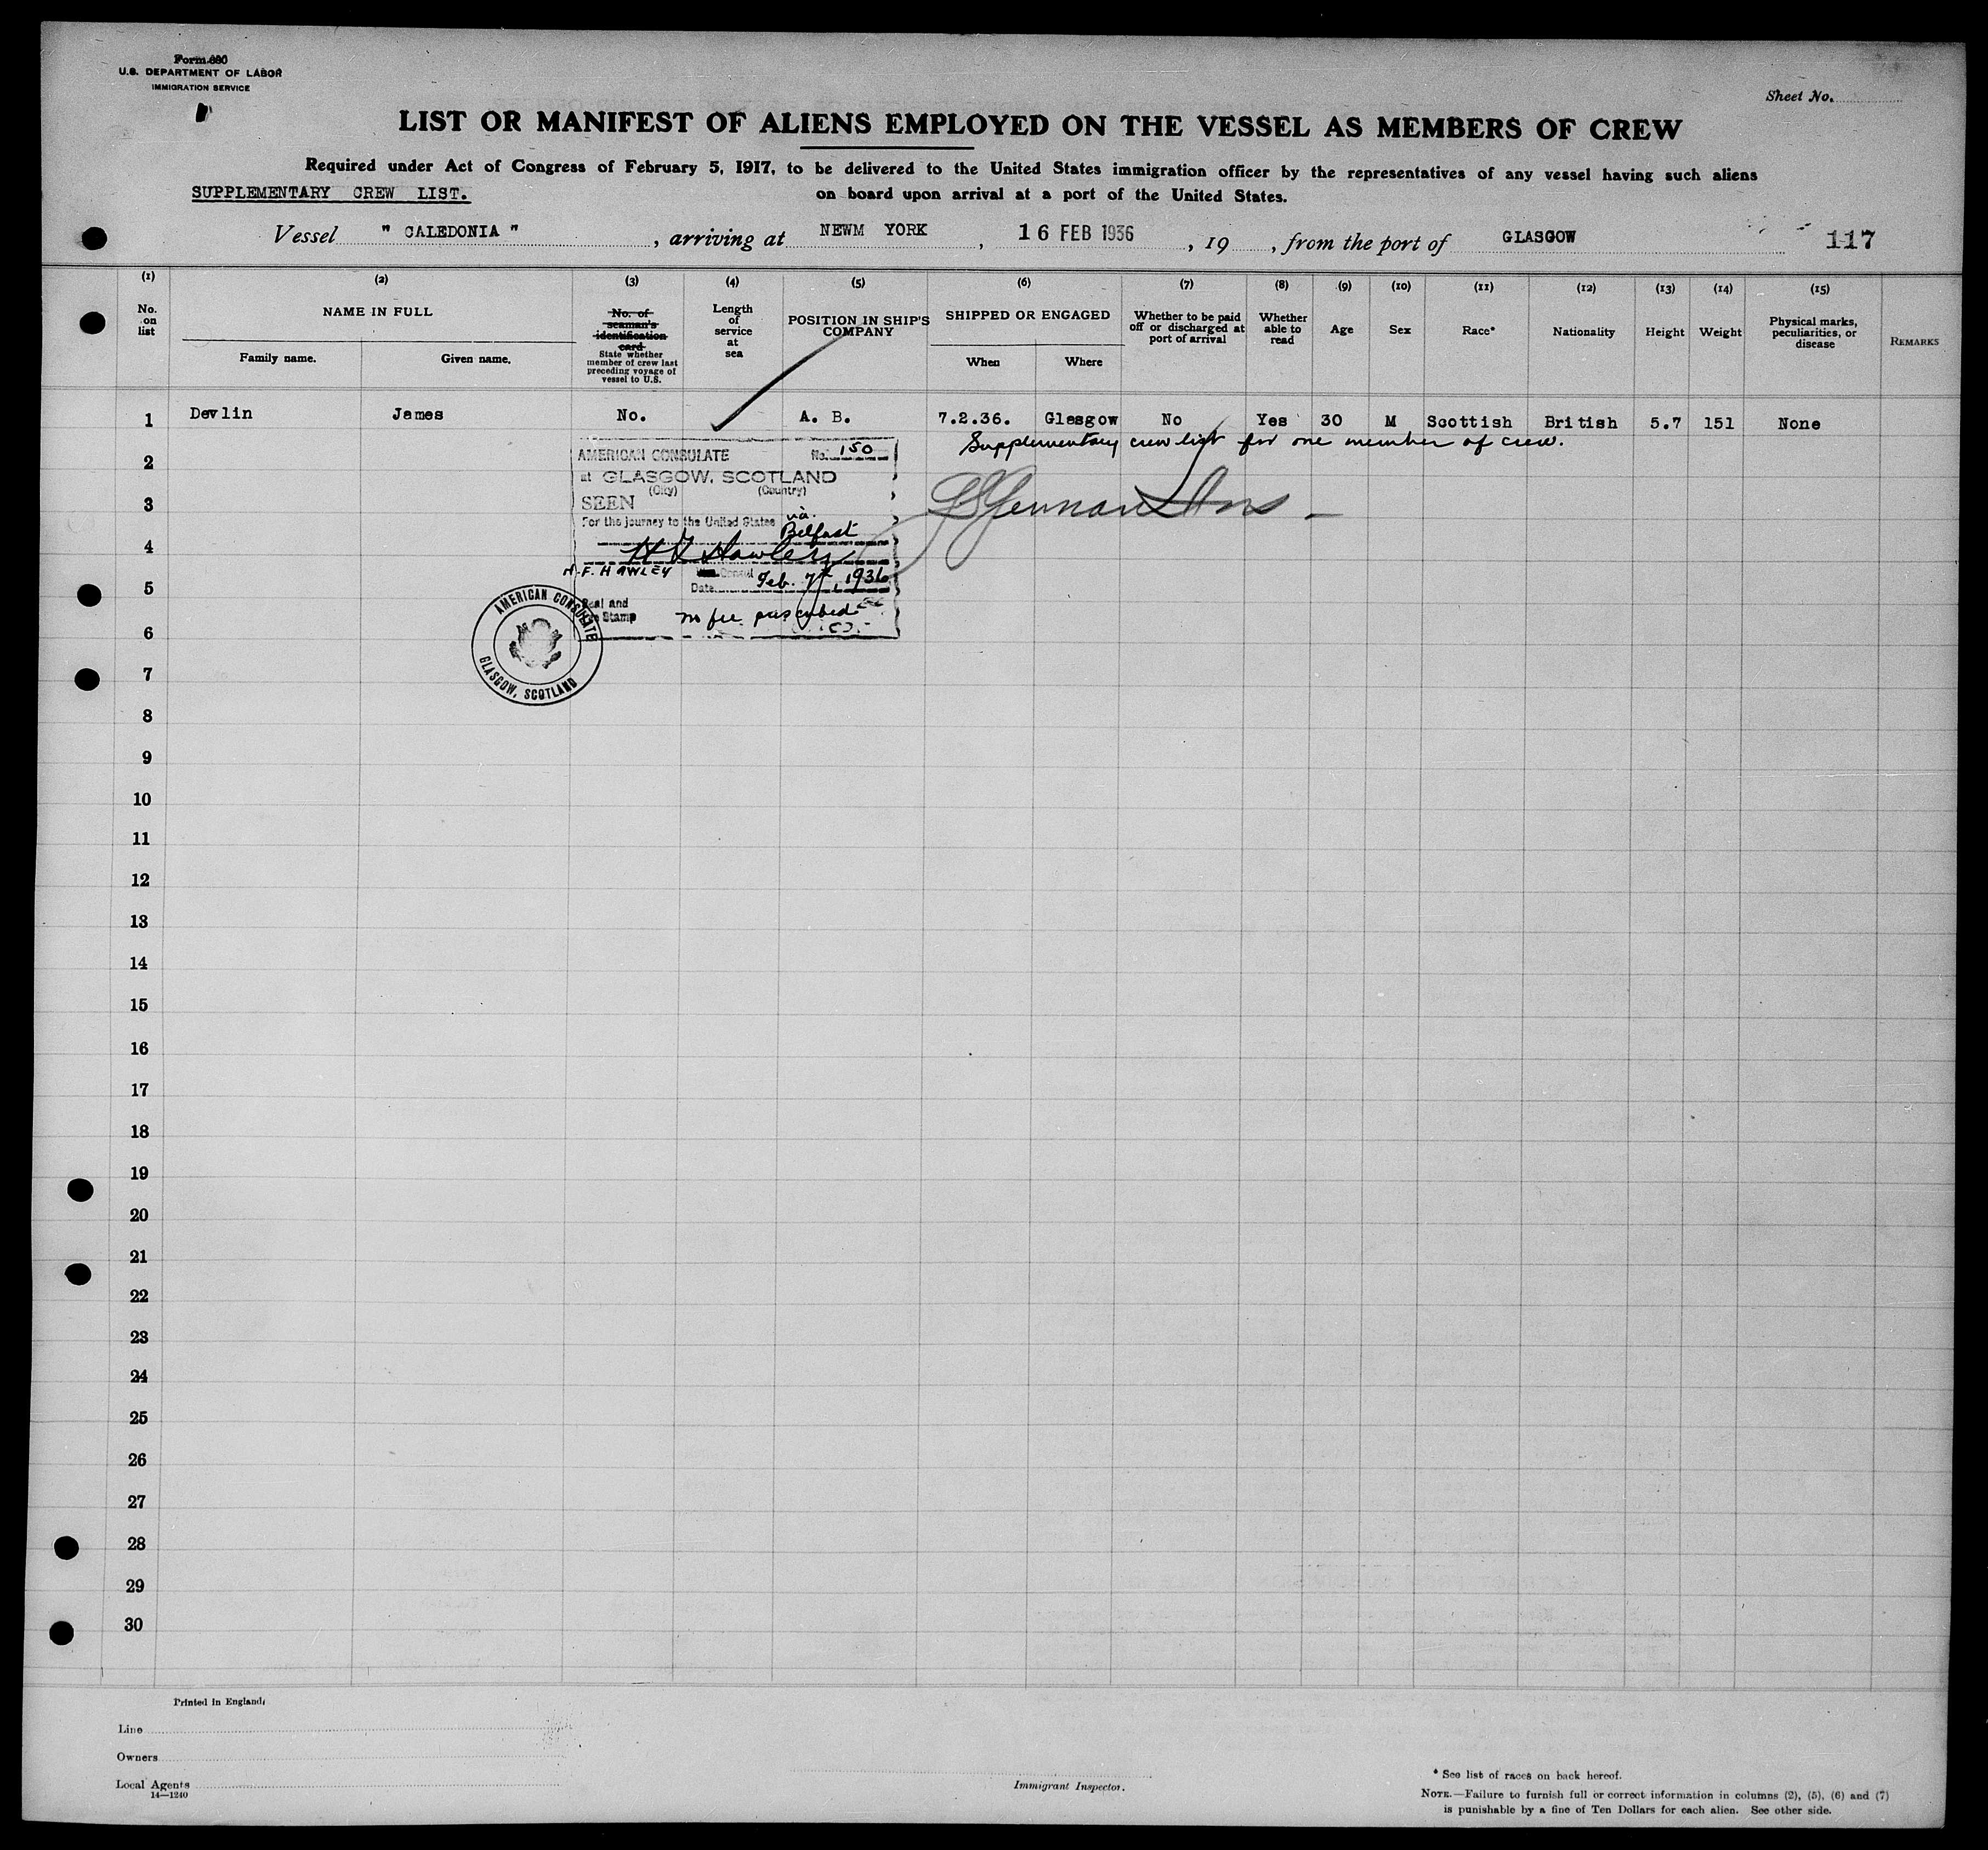 Form 680
U.S. DEPARTMENT OF LABOR
IMMIGRATION SERVICE
Sheet No.
LIST OR MANIFEST OF ALIENS EMPLOYED ON THE VESSEL AS MEMBERS OF CREW
Required under Act of Congress of February 5, 1917, to be delivered to the United States immigration officer by the representatives of any vessel having such aliens
SUPPLEMENTARY CREW LIST.
on board upon arrival at a port of the United States.
Vessel " CALEDONIA " , arriving at NEWM YORK , 16 FEB 1936 , 19 , from the port of GLASGOW 117
(1) (2) (3) (4) (5) (6) (7) (8) (9) (10) (11) (12) (13) (14) (15)
No. on list
NAME IN FULL
Family name. Given name.
No. of seaman's identification card
State whether member of crew last preceding voyage of vessel to U.S.
Length of service at sea
POSITION IN SHIP'S COMPANY
SHIPPED OR ENGAGED
When Where
Whether to be paid off or discharged at port of arrival
Whether able to read
Age
Sex
Race*
Nationality
Height
Weight
Physical marks, peculiarities, or disease
REMARKS
1 Devlin James No. A. B. 7.2.36. Glasgow No Yes 30 M Scottish British 5.7 151 None
Supplementary crew list for one member of crew.
AMERICAN CONSULATE No. 150
at GLASGOW, SCOTLAND
(City) (Country)
SEEN
For the journey to the United States via
Belfast
H F Hawley
H. F. HAWLEY Consul
Date Feb. 7th, 1936
Seal and
Stamp
no fee prescribed
AMERICAN CONSULATE
GLASGOW, SCOTLAND
2
3
4
5
6
7
8
9
10
11
12
13
14
15
16
17
18
19
20
21
22
23
24
25
26
27
28
29
30
Printed in England.
Line
Owners
Local Agents
14—1240
Immigrant Inspector.
* See list of races on back hereof.
NOTE.—Failure to furnish full or correct information in columns (2), (5), (6) and (7)
is punishable by a fine of Ten Dollars for each alien. See other side.